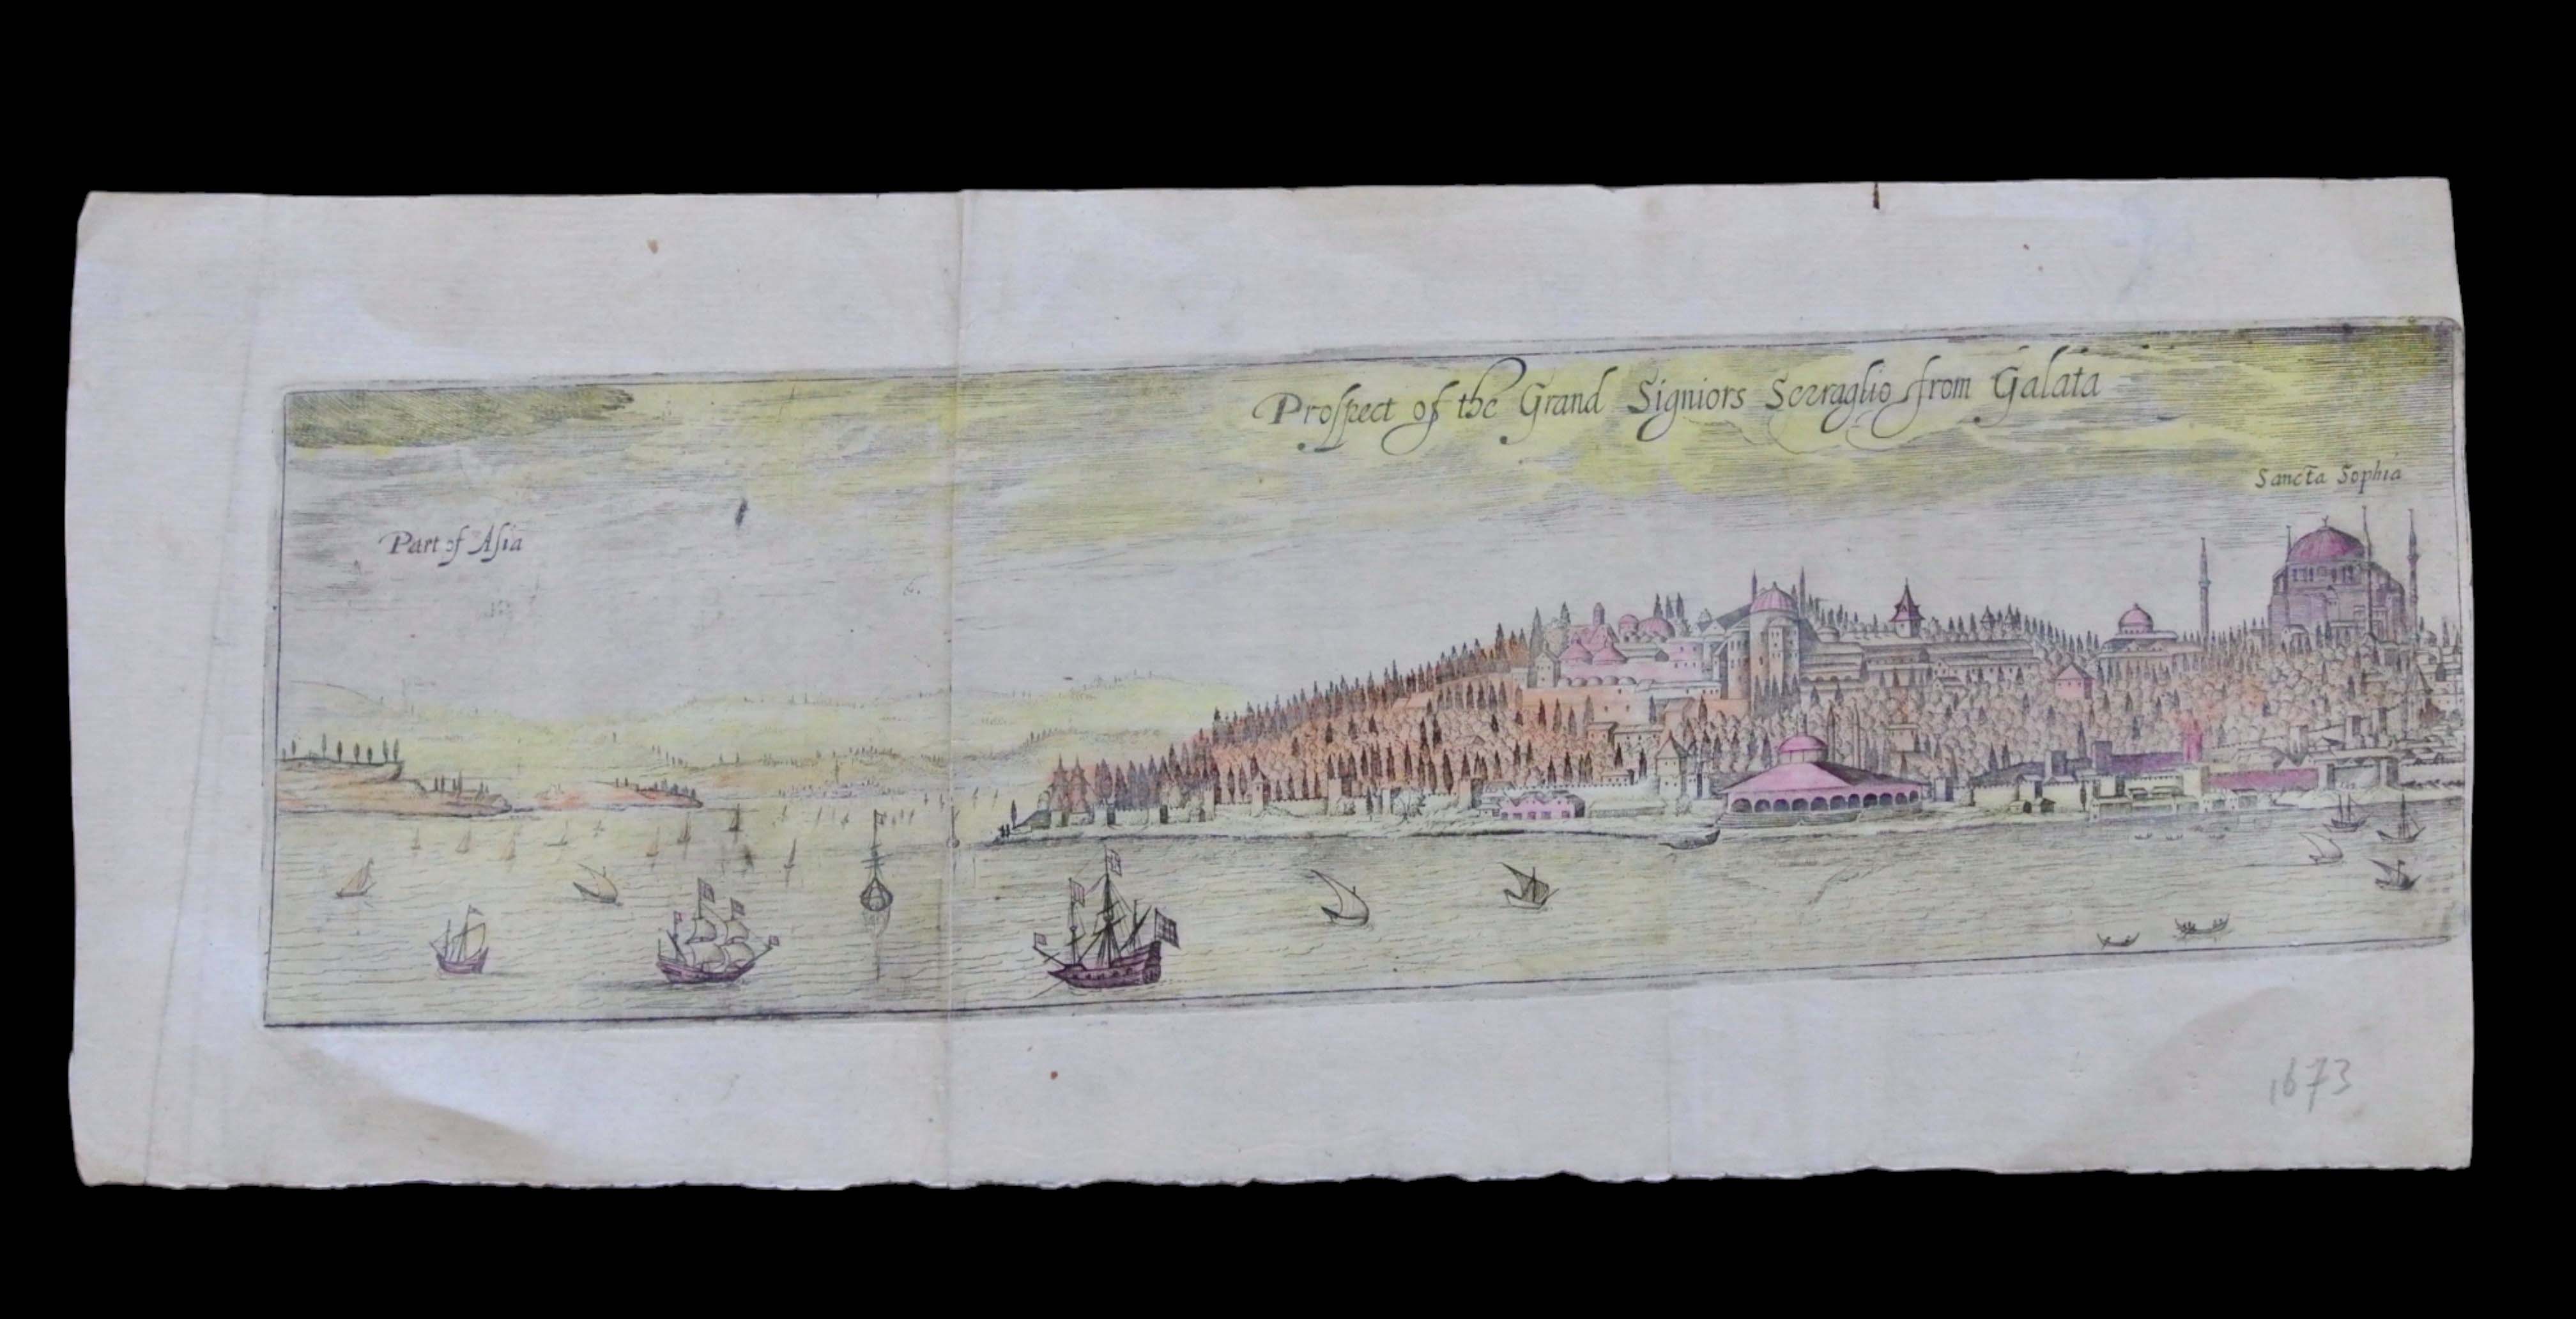 Proſpect of the Grand Signiors Serraglio from Galata
Sancta Sophia
Part of Aſia
1673